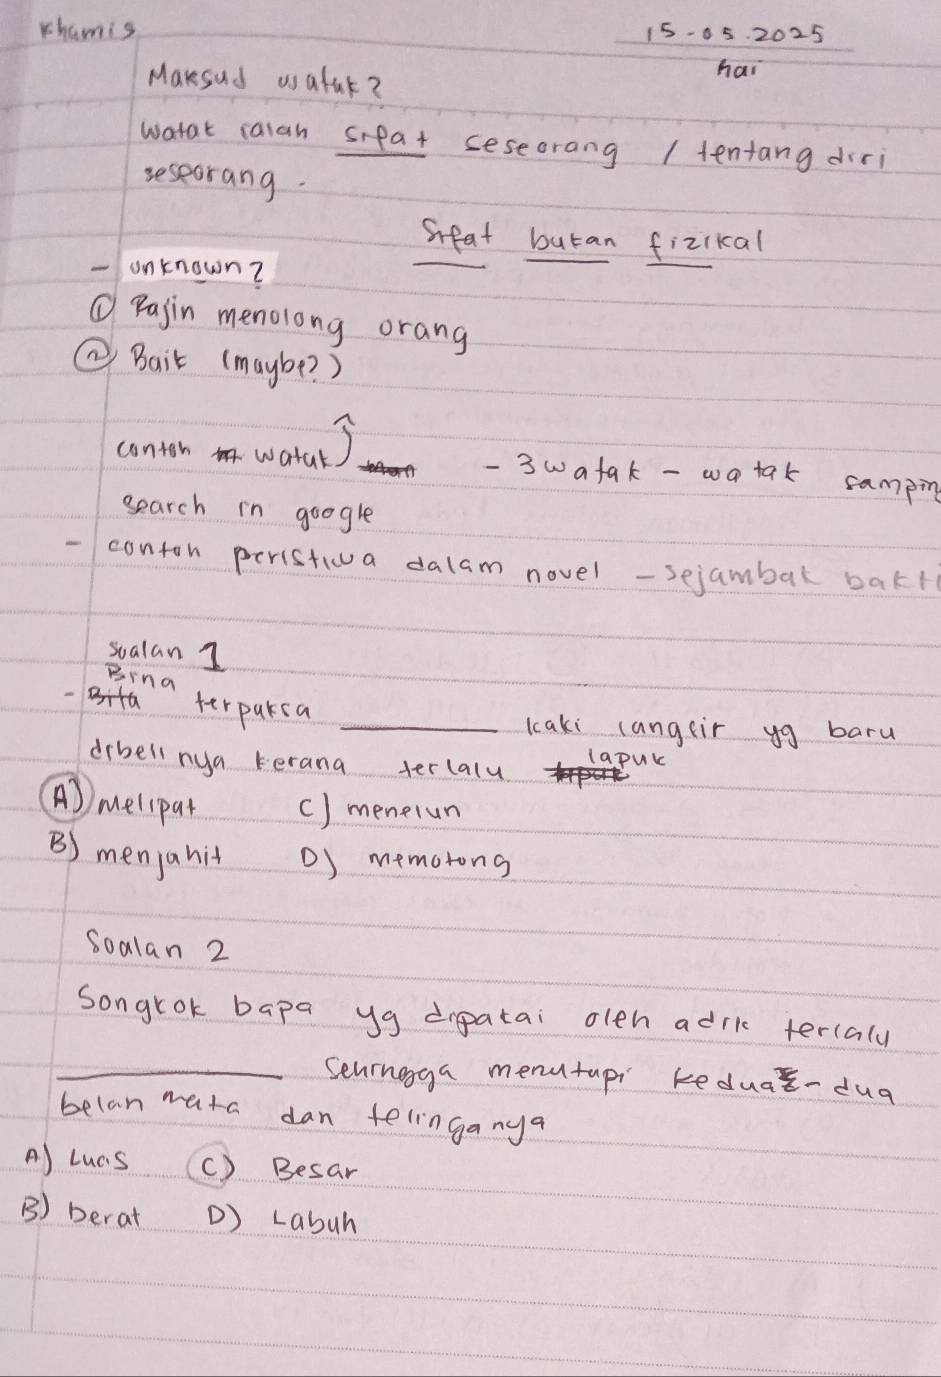 Khamis
15-05.2025
hai
Maksud watak?
Watak ialah sifat seseorang / tentang diri
seseorang.
Sifat bukan fizikal
- unknown?
① Rajin menolong orang
② Baik (maybe?)
contoh watak - 3 watak - watak sampin
search in google
- contoh peristiwa dalam novel - sejambak bakti
Soalan 1
Bina
- Bita terpaksa ________ kaki langsir yg baru
dibelinya kerana terlalu lapuk
A) melipat C) menelun
B) menjahit D) memotong
Soalan 2
Songkok bapa yg dipakai oleh adik terlalu
________ sehingga menutupi kedua-dua
belah mata dan telinganya
A) Luas C) Besar
B) berat D) Labuh